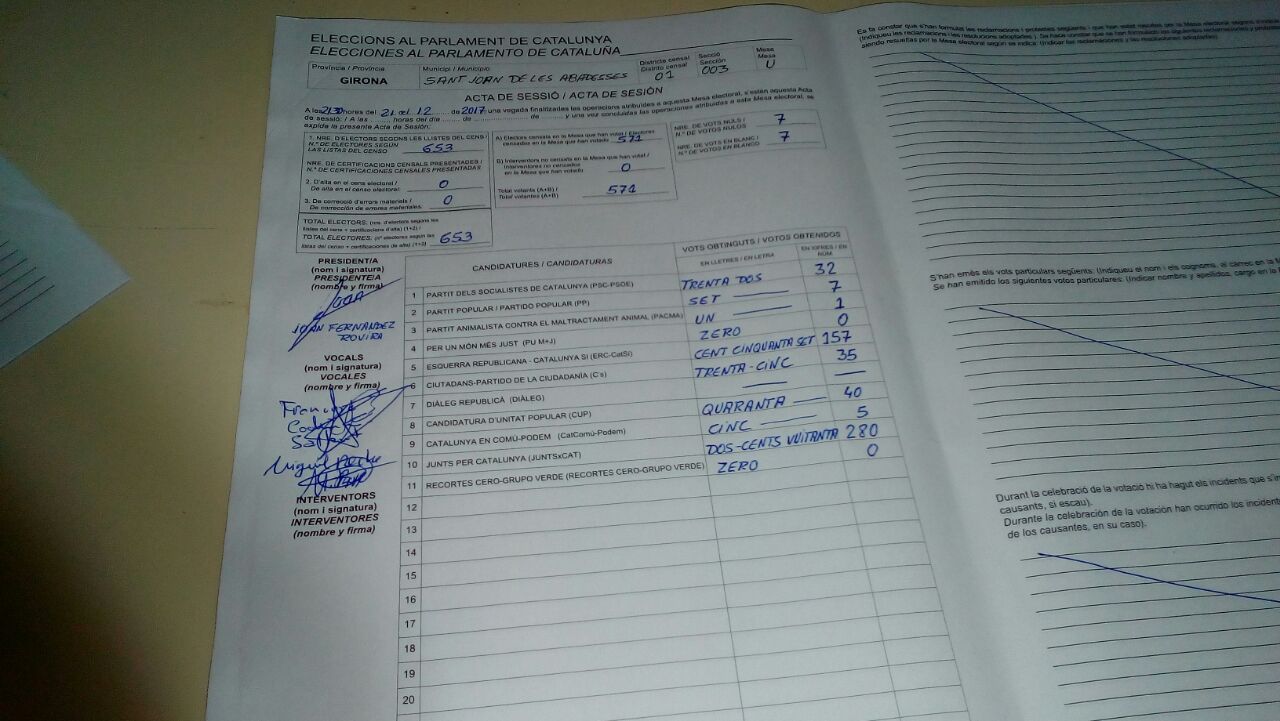 ELECCIONS AL PARLAMENT DE CATALUNYA
ELECCIONES AL PARLAMENTO DE CATALUÑA
Província / Provincia
GIRONA
Municipi / Municipio
SANT JOAN DE LES ABADESSES
Districte censal
Distrito censal
01
Secció
Sección
003
Mesa
Mesa
U
ACTA DE SESSIÓ / ACTA DE SESIÓN
A les 21:30 hores del 21 del 12 de 2017 una vegada finalitzades les operacions atribuïdes a aquesta Mesa electoral, s'estén aquesta Acta
de sessió / A las ........ horas del día ........ de ........ de ........ y una vez concluidas las operaciones atribuidas a esta Mesa electoral, se
expide la presente Acta de Sesión:
1. NRE. D'ELECTORS SEGONS LES LLISTES DEL CENS /
N.º DE ELECTORES SEGÚN
LAS LISTAS DEL CENSO 653
NRE. DE CERTIFICACIONS CENSALS PRESENTADES /
N.º DE CERTIFICACIONES CENSALES PRESENTADAS
2. D'alta en el cens electoral /
De alta en el censo electoral: 0
3. De correcció d'errors materials /
De corrección de errores materiales. 0
TOTAL ELECTORS: (nre. d'electors segons les
llistes del cens + certificacions d'alta) (1+2) /
TOTAL ELECTORES: (nº electores según las
listas del censo + certificaciones de alta) (1+2) 653
A) Electors censats en la Mesa que han votat / Electores
censados en la Mesa que han votado 571
B) Interventors no censats en la Mesa que han votat /
Interventores no censados
en la Mesa que han votado 0
Total votants (A+B) /
Total votantes (A+B) 571
NRE. DE VOTS NULS /
N.º DE VOTOS NULOS 7
NRE. DE VOTS EN BLANC /
N.º DE VOTOS EN BLANCO 7
PRESIDENT/A
(nom i signatura)
PRESIDENTE/A
(nombre y firma)
JOAN FERNANDEZ
ROVIRA
VOCALS
(nom i signatura)
VOCALES
(nombre y firma)
INTERVENTORS
(nom i signatura)
INTERVENTORES
(nombre y firma)
CANDIDATURES / CANDIDATURAS
VOTS OBTINGUTS / VOTOS OBTENIDOS
EN LLETRES / EN LETRA
EN XIFRES / EN
NÚM.
1 PARTIT DELS SOCIALISTES DE CATALUNYA (PSC-PSOE) TRENTA DOS 32
2 PARTIT POPULAR / PARTIDO POPULAR (PP) SET 7
3 PARTIT ANIMALISTA CONTRA EL MALTRACTAMENT ANIMAL (PACMA) UN 1
4 PER UN MÓN MÉS JUST (PU M+J) ZERO 0
5 ESQUERRA REPUBLICANA - CATALUNYA SÍ (ERC-CatSí) CENT CINQUANTA SET 157
6 CIUTADANS-PARTIDO DE LA CIUDADANÍA (C's) TRENTA-CINC 35
7 DIÀLEG REPUBLICÀ (DIÀLEG) — —
8 CANDIDATURA D'UNITAT POPULAR (CUP) QUARANTA 40
9 CATALUNYA EN COMÚ-PODEM (CatComú-Podem) CINC 5
10 JUNTS PER CATALUNYA (JUNTSxCAT) DOS-CENTS VUITANTA 280
11 RECORTES CERO-GRUPO VERDE (RECORTES CERO-GRUPO VERDE) ZERO 0
12
13
14
15
16
17
18
19
20
Es fa constar que s'han formulat les reclamacions i protestes següents i que han estat resoltes per la Mesa electoral segons s'indica:
(Indiqueu les reclamacions i les resolucions adoptades) / Se hace constar que se han formulado las siguientes reclamaciones y
siendo resueltas por la Mesa electoral según se indica: (Indicar las reclamaciones y las resoluciones adoptadas)
S'han emès els vots particulars següents: (Indiqueu el nom i els cognoms, el càrrec en la
Se han emitido los siguientes votos particulares: (Indicar nombre y apellidos, cargo en la
Durant la celebració de la votació hi ha hagut els incidents que s'
causants, si escau).
Durante la celebración de la votación han ocurrido los
de los causantes, en su caso).